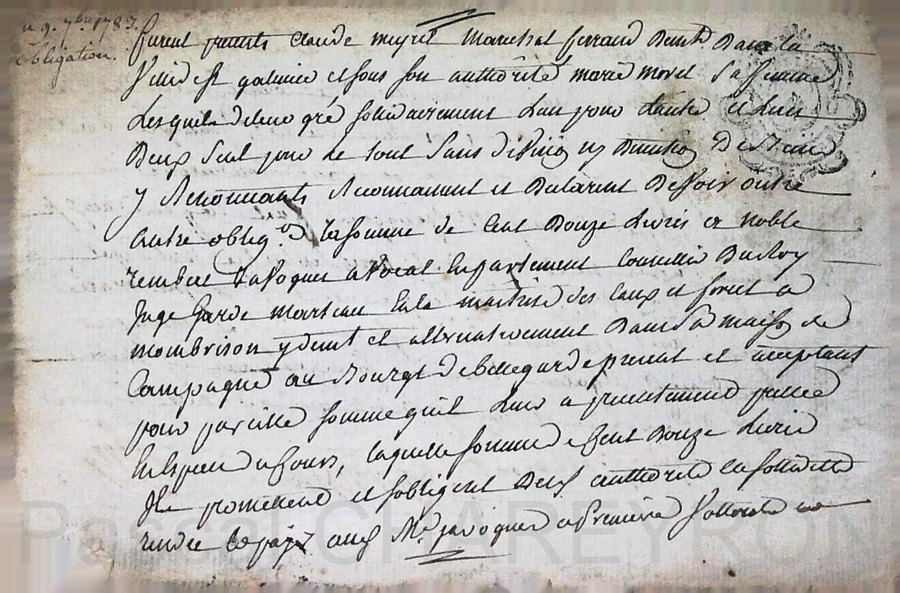 9. 7bre 1783.
obligation.
furent presents Claude meyret Marechal ferrand Demt Dans la
Ville de St galmier et sous son authorité marie morel Sa femme
Lesquels de leur gré solidairement L'un pour L'autre et L'un
Deux seul pour le tout Sans Division ny
y Renonnants Reconnaissent et Declarent Devoir outre
autre obligon La somme de Cent Douze Livres a noble
rembert Javogues avocat en parlement Conseiller Du Roy
Juge Garde marteau En la maitrise des Eaux et foret de
mombrison y demt et alternativement Dans Sa maison de
Campagne au Bourg de Bellegarde present et acceptant
pour pareille somme qu'il Leur a presentement pretée
En Especes De Cours, laquelle somme de Cent Douze Livres
Ils promettent et s'obligent Deux authorité et solidité
rendre et payer aud Mr. Javogues a Premiere Volonté
Pascal CHAREYRON